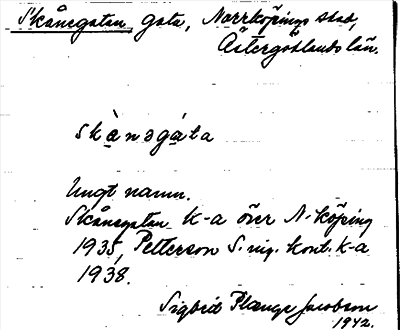 Skånegatan gata, Norrköpings stad,
Östergötlands län.
skànəgáta
Ungt namn.
Skånegatan K-a över N-köping
1935, Petterson S. nig. kont. k-a
1938.
Sigbrit Plænge Jacobson
1942.